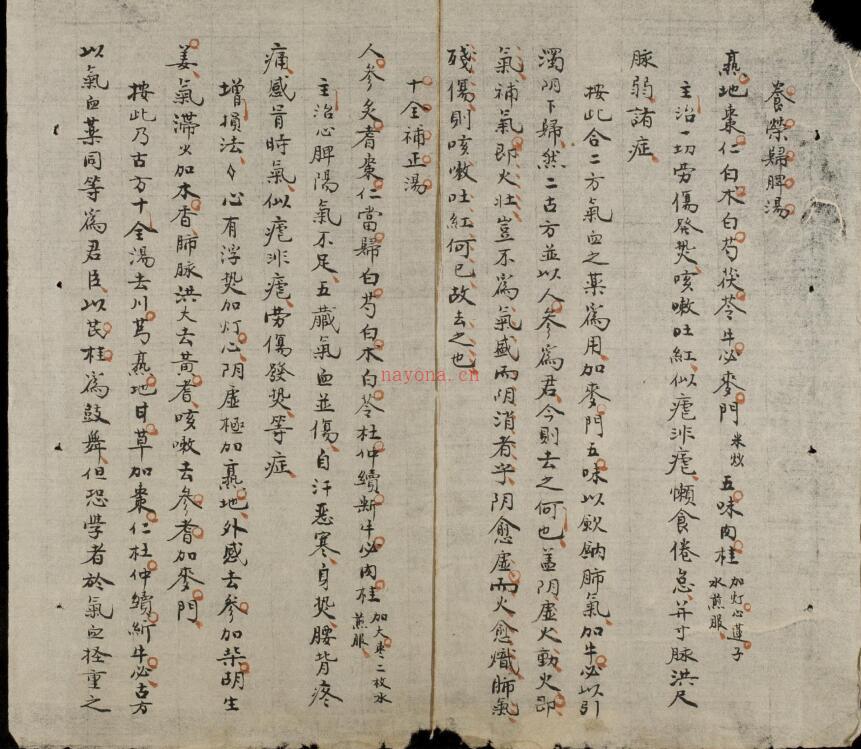 養榮歸脾湯
熟地棗仁白朮白芍茯苓牛必麥門米炒五味肉桂加灯心蓮子水煎服
主治一切勞傷發熱咳嗽吐紅似瘧非瘧懶食倦怠并寸脉洪尺
脉弱諸症
按此合二方氣血之藥為用加麥門五味以歛納肺氣加牛必以引
濁阴下歸然二古方並以人參為君今則去之何也盖阴虛火動火即
氣補氣即火壯豈不為氣盛而阴消者乎阴愈虛而火愈熾肺氣
殘傷則咳嗽吐紅何已故去之也
十全補正湯
人參炙耆棗仁當歸白芍白朮白苓杜仲續斷牛必肉桂加大枣二枚水煎服
主治心脾陽氣不足五臟氣血並傷自汗惡寒身熱腰背疼
痛感冒時氣似瘧非瘧勞傷發熱等症
增損法々心有浮熱加灯心阴虛極加熟地外感去參加柴胡生
姜氣滯火加木香肺脉洪大去黃耆咳嗽去參耆加麥門
按此乃古方十全湯去川芎熟地甘草加棗仁杜仲續斷牛必古方
以氣血藥同等為君臣以芪桂為鼓舞但恐学者於氣血輕重之
nayona.cn